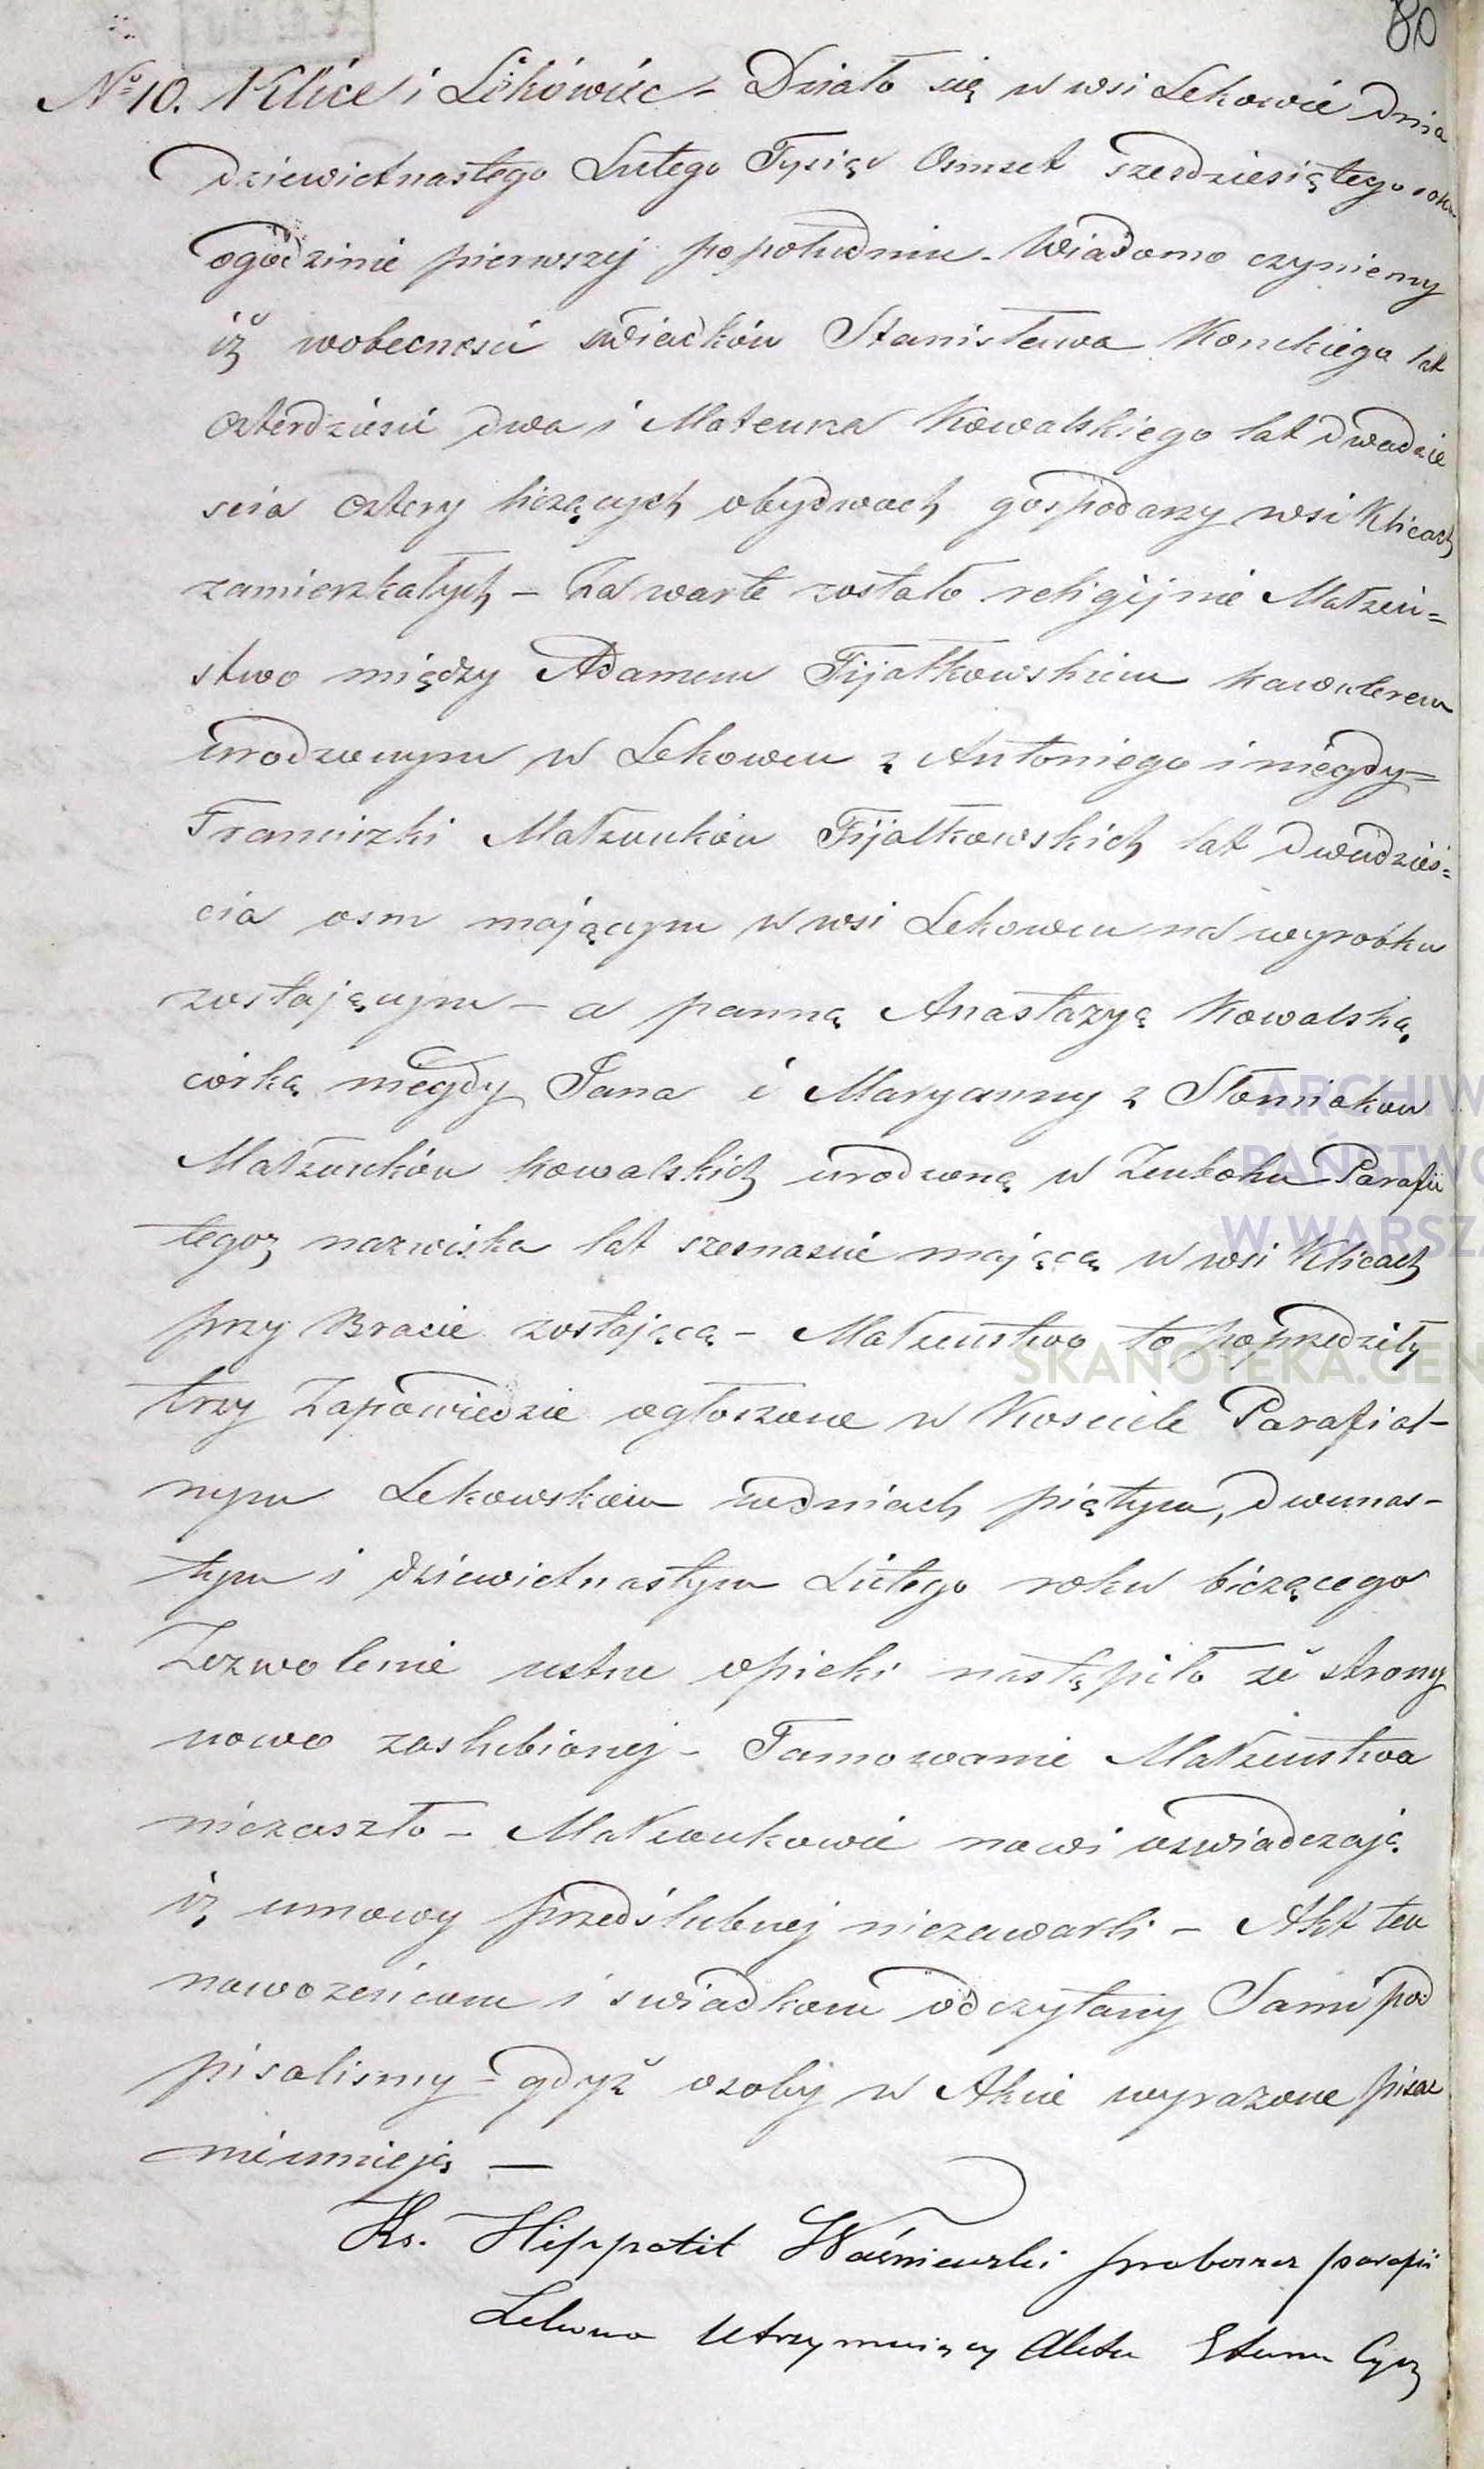 80
№ 10. Klice i Lekówiec - Działo się w wsi Lekowie dnia
dziewietnastego Lutego Tysiąc Osmset szesdziesiątego roku
ogódzinie pierwszej popołudniu - Wiadomo czyniemy
iż wobecnosci swiadków Stanisława Konckiego lat
czterdziesci dwa i Mateusza Kowalskiego lat dwadzie
scia cztery liczących obydwóch gospodarzy wsi Klicach
zamieszkałych - Zawarte zostało religijnie Małżeń=
stwo między Adamem Fijałkowskiem kawalerem
urodzonym w Lekowcu z Antoniego i niegdy=
Franciszki Małżonków Fijałkowskich lat dwudzieś=
cia osm mającym w wsi Lekowcu na wyrobku
zostającym - a panną Anastazyą Kowalską
córką niegdy Jana i Maryanny z Słomiaków
Małżonków Kowalskich urodzoną w Zemboku Parafii
tegoż nazwiska lat szesnascie mającą w wsi Klicach
przy Bracie zostającą - Małżenstwo to poprzedziły
trzy Zapowiedzie ogłoszone w Kosciele Parafial-
nym Lekowskiem wdniach piątym, dwunas-
tym i dziewietnastym Lutego roku bieżącego
Zezwolenie ustne opieki nastąpiło ze strony
nowo zaslubionej - Tamowanie Małżenstwa
niezaszło - Małżonkowie nowi oswiadczają
iż umowy przedślubnej niezawarli - Akt ten
nowożeńcom i swiadkom odczytany Sami pod
pisalismy - gdyż osoby w Akcie wyrażone pisac
nieumieją -
Ks. Hippolit Waśniewski proboszcz parafii
Lekowo Utrzymujący Akta Stanu Cyw
ARCHIW
PAŃSTWO
W WARSZA
SKANOTEKA.GEN